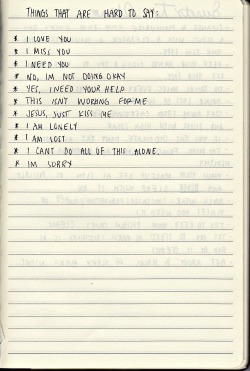 THINGS THAT ARE HARD TO SAY:
* I LOVE YOU
* I MISS YOU
* I NEED YOU
* NO, IM NOT DOING OKAY
* YES, I NEED YOUR HELP
* THIS ISN'T WORKING FOR ME
* JESUS, JUST KISS ME
* I AM LONELY
* I AM LOST
* I CAN'T DO ALL OF THIS ALONE.
* IM SORRY